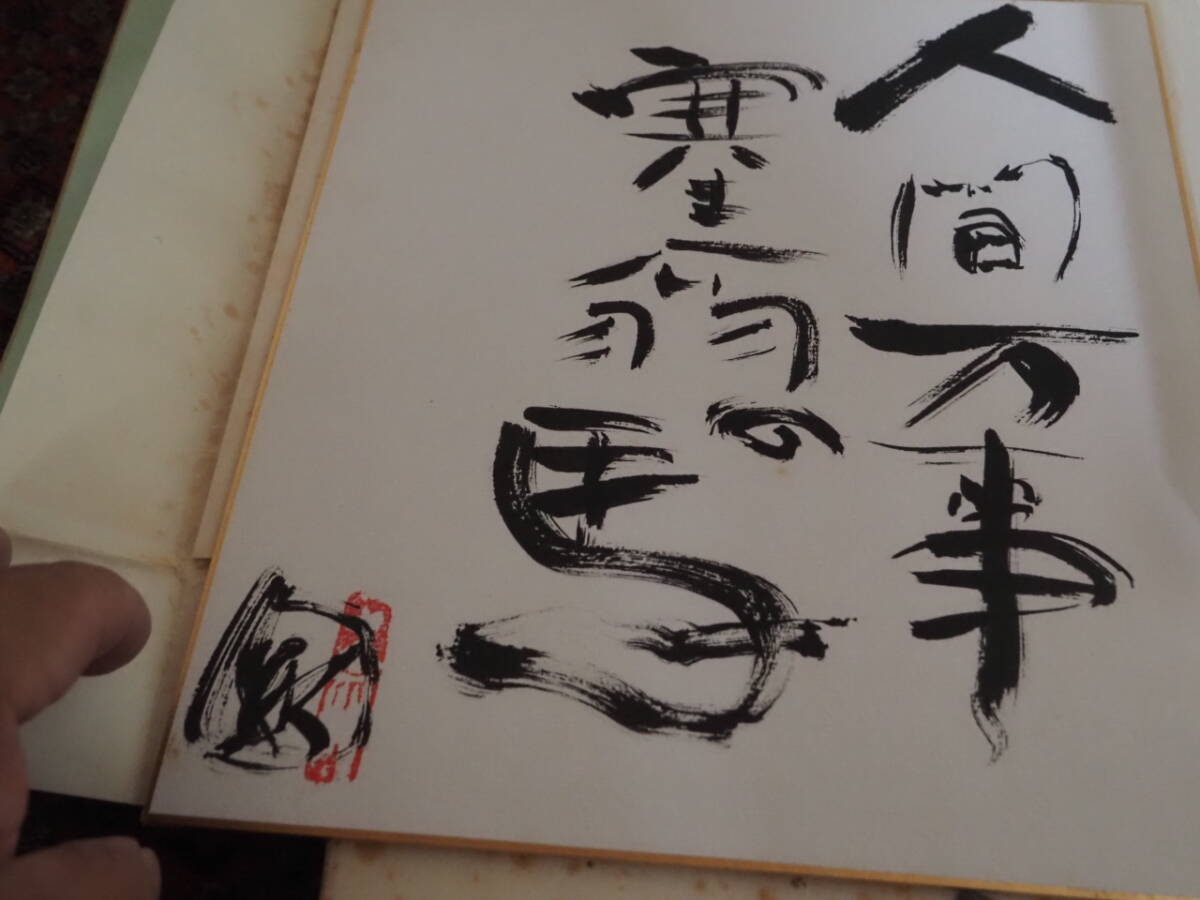 人間万事
塞翁の馬